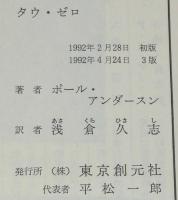 タウ・ゼロ
1992年2月28日 初版
1992年4月24日 3版
著者 ポール・
アンダースン
訳者 浅倉久志
あさ くら ひさ し
発行所 (株) 東京創元社
代表者 平松一郎